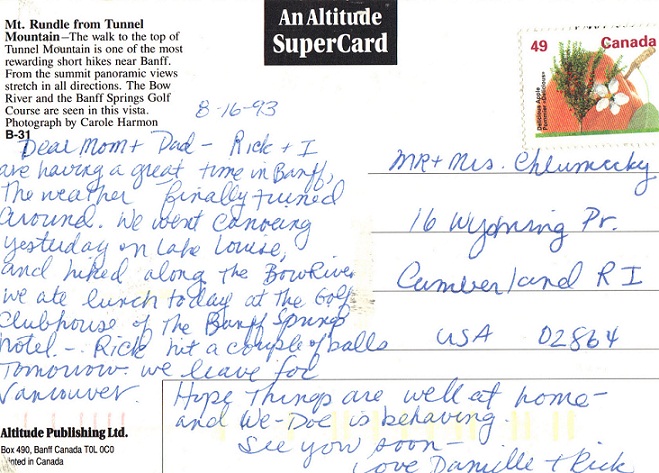 Mt. Rundle from Tunnel
Mountain–The walk to the top of
Tunnel Mountain is one of the most
rewarding short hikes near Banff.
From the summit panoramic views
stretch in all directions. The Bow
River and the Banff Springs Golf
Course are seen in this vista.
Photograph by Carole Harmon
B-31
An Altitude
SuperCard
49 Canada
Delicious Apple
Pommier «Delicious»
8-16-93
Dear Mom + Dad - Rick + I
are having a great time in Banff,
The weather finally turned
around. We went canoeing
yesterday on Lake Louise,
and hiked along the Bow River
we ate lunch today at the Golf
Clubhouse of The Banff Springs
hotel - Rick hit a couple of balls
Tomorrow we leave for
Vancouver.
Hope Things are well at home -
and We-Doe is behaving.
See you soon -
Love Danielle + Rick
MR + Mrs. Chlumecky
16 Wyoming Dr.
Cumberland R I
USA 02864
Altitude Publishing Ltd.
Box 490, Banff Canada T0L 0C0
Printed in Canada